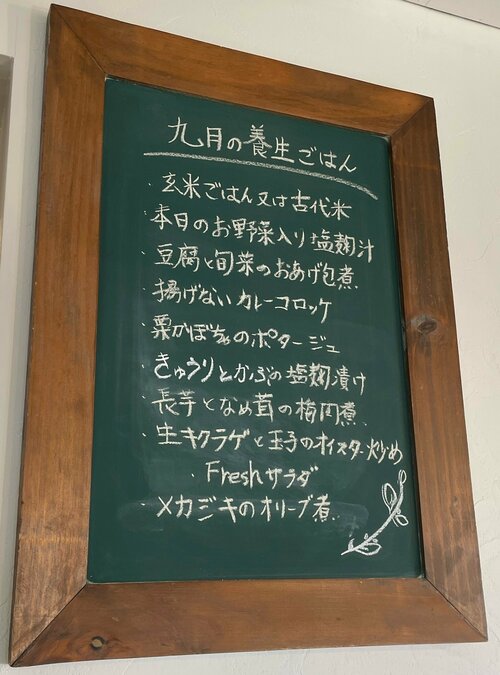 九月の養生ごはん
・玄米ごはん又は古代米
・本日のお野菜入り塩麹汁
・豆腐と旬菜のおあげ包煮
・揚げないカレーコロッケ
・栗かぼちゃのポタージュ
・きゅうりとかぶの塩麹漬け
・長芋となめ茸の梅肉煮
・生キクラゲと玉子のオイスター炒め
・Freshサラダ
・メカジキのオリーブ煮